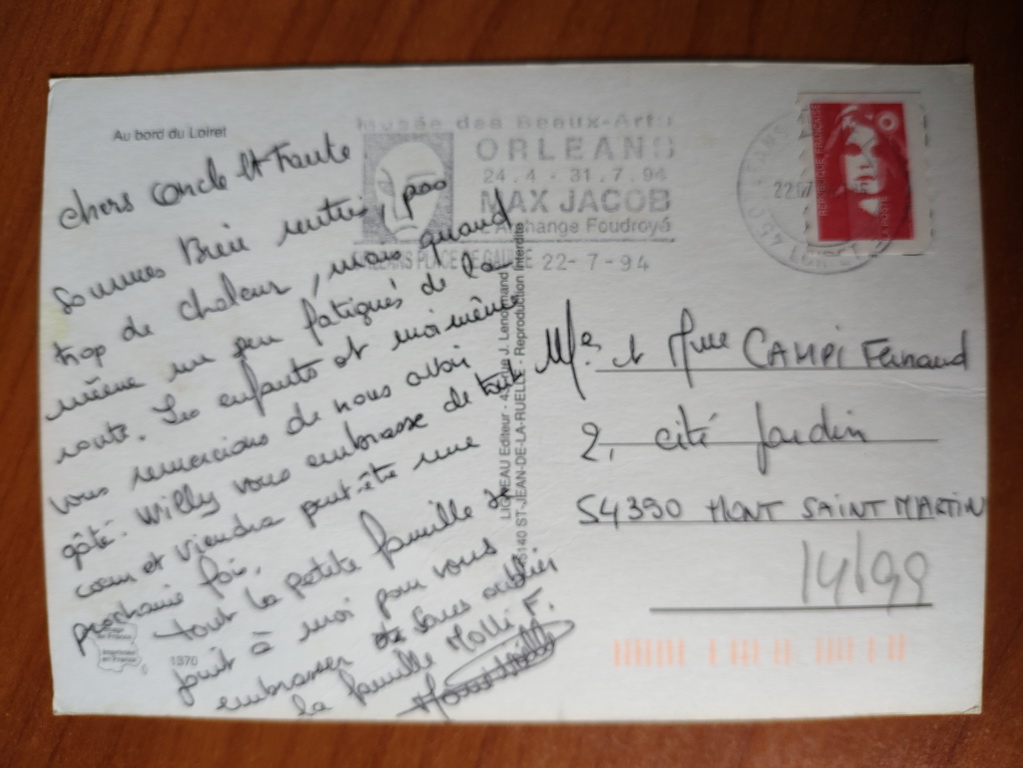 Au bord du Loiret
Musée des Beaux-Arts
ORLEANS
24.4 - 31.7.94
MAX JACOB
L'Archange Foudroyé
ORLEANS PLACE DE GAULLE 22-7-94
REPUBLIQUE FRANÇAISE
chers oncle et tante
Sommes Bien rentrés, pas
trop de chaleur, mais quand
même un peu fatigués de la
route. Les enfants et moi même
vous remercions de nous avoir
gâté. Willy vous embrasse de tout
coeur et viendra peut-être une
prochaine fois.
tout la petite famille se
joint à moi pour vous
embrasser sans oublier
la famille Molli F.
LIGNEAU Editeur - 4 rue J. Lenormand
45140 ST-JEAN-DE-LA-RUELLE - Reproduction Interdite
Mr et Mme CAMPI Fernand
2, cité Jardin
54390 MONT SAINT MARTIN
14/99
en France
Imprimée
en France
1370